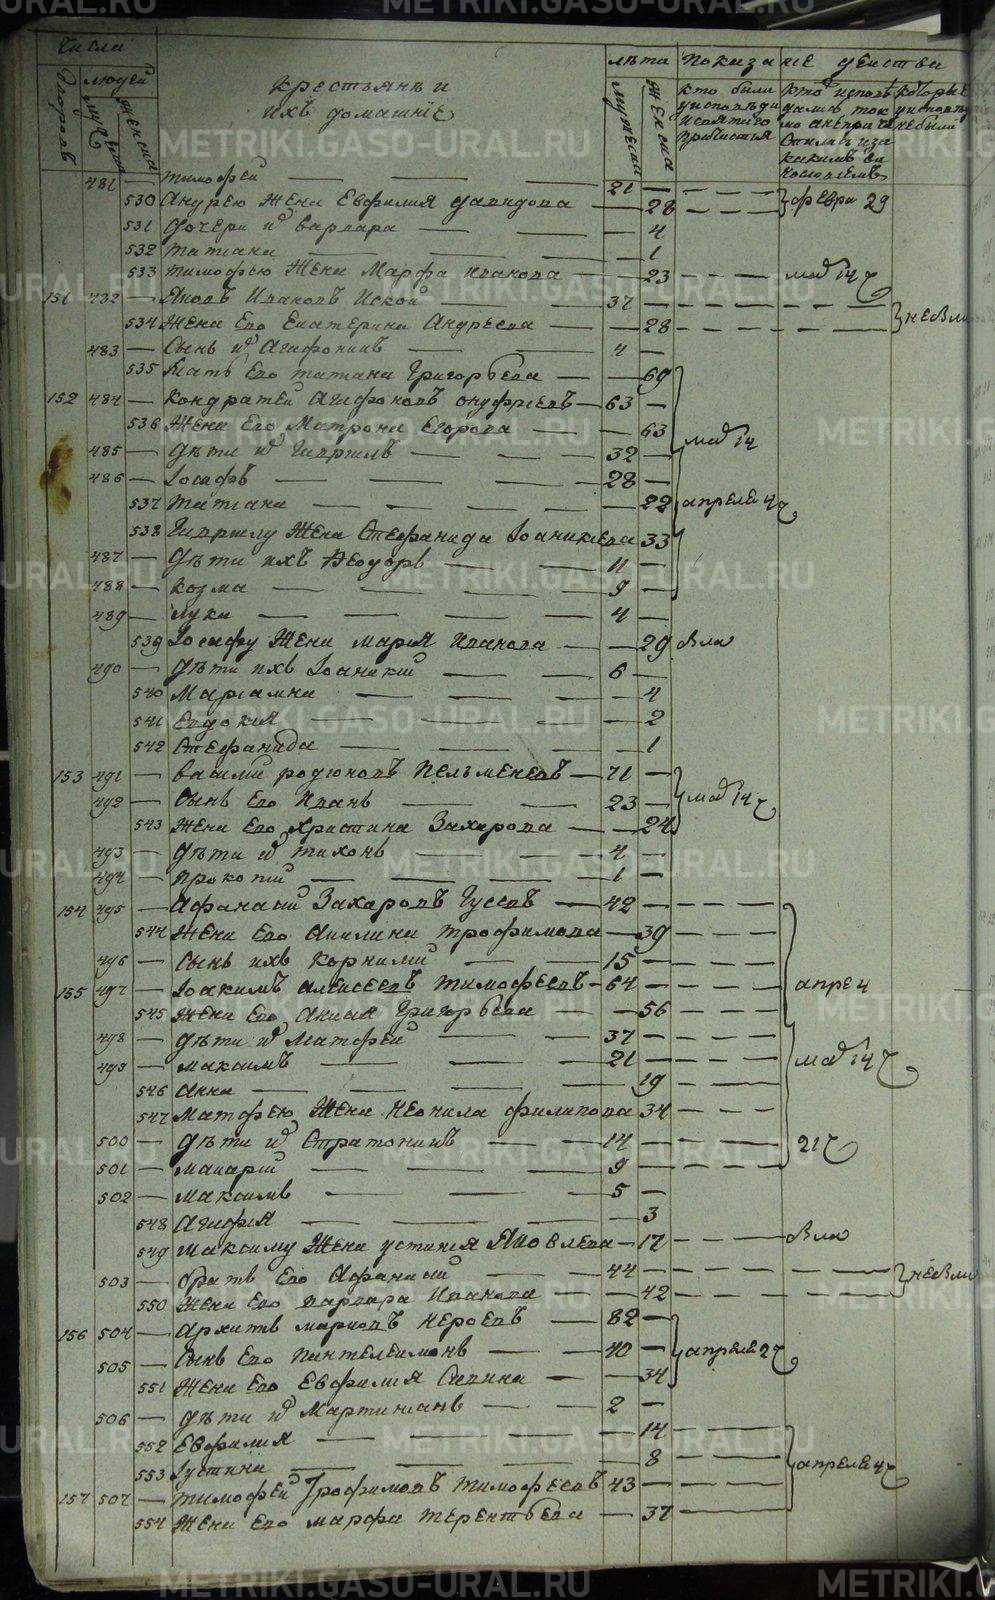 METRIKI.GASO-URAL.RU
Числа
людей
Дворовъ
муж
женска
крестьянъ и
ихъ домашніе
лѣта
мужеска
женска
показаніе действа
кто были
у исповѣди
и святаго
причастія
кто исповѣ
дались ток
мо а не прича
стились и за
какимъ ви
нословіемъ
которые
у исповѣд
не были
481 — тимофей — 21 —
530 Андрею Жена Евфимия давидова — 28 } февра 29
531 дочери ихъ варвара — 4
532 татиана — 1
533 тимофею Жена Марфа иванова — 23 маі 14
151 482 — Яковъ Ивановъ 37 —
534 Жена Его Екатерина Андреева — 28 } не бли
483 — Сынъ ихъ Агафоникъ 4 —
535 Мать Его татиана Григорьева — 69
152 484 — Кондратей Агафоновъ онуфриевъ — 63 —
536 Жена Его Матрона Егорова — 63 маі 14
485 — Дѣти ихъ Гавриилъ 32 —
486 — Іосифъ 28 —
537 татиана — 22 апреля 4
538 Гавриилу Жена Стефанида Іоаникиева 33
487 — Дѣти ихъ Ѳеодоръ 11 —
488 — козма 9 —
489 — лука 4 —
539 Іосифу Жена мария Иванова — 29 бли
490 — Дѣти ихъ Іоаникий 6 —
540 Мариамна — 4
541 Евдокия — 2
542 Стефанида — 1
153 491 — василий родионовъ пельменевъ — 71 —
492 — Сынъ Его Иванъ 23 — } маі 14
543 Жена Его Христина Захарова — 24
493 — Дѣти ихъ тихонъ 4 —
494 — прокопий 1 —
154 495 — Афанасий Захаровъ Гусевъ — 42 —
544 Жена Его Акилина трофимова — 39
496 — Сынъ ихъ Корнилий 15 —
155 497 — Іоакимъ алексеевъ тимофеевъ — 64 — апре 4
545 Жена Его Анисия Григорьева — 56
498 — дѣти ихъ Матфей 37 —
499 — максимъ 21 — маі 14
546 анна — 19
547 матфею Жена неонила филипова 34
500 — дѣти ихъ Стратоникъ 14 — 21
501 — макарий 9 —
502 — максимъ 5 —
548 Агафия — 3
549 максиму Жена устиния Яковлева — 17 бли
503 — братъ Его Афанасий 44 —
550 Жена Его варвара Иванова — 42 } не бли
156 504 — Архипъ марковъ Нероевъ — 82 —
505 — Сынъ Его пантелеимонъ 40 — } апреля 2
551 Жена Его Евфимия Савина — 34
506 — дѣти ихъ Мартинианъ 2 —
552 Евфимия — 14
553 Іустина — 8 } апреля 4
157 507 — тимофей Трофимовъ тимофеевъ 43 —
554 Жена Его марфа терентьева — 37